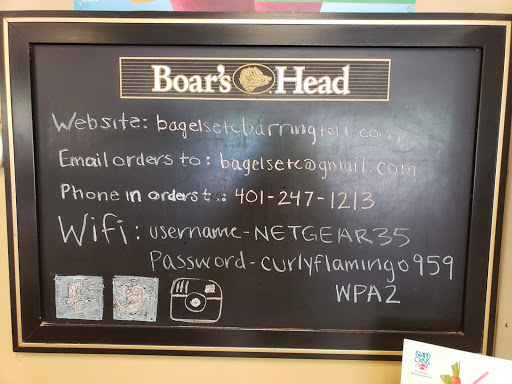 Boar's Head
Website: bagelsetcbarrington.com
Email orders to: bagelsetc@gmail.com
Phone in orders to: 401-247-1213
Wifi: username-NETGEAR35
Password-curlyflamingo959
WPA2